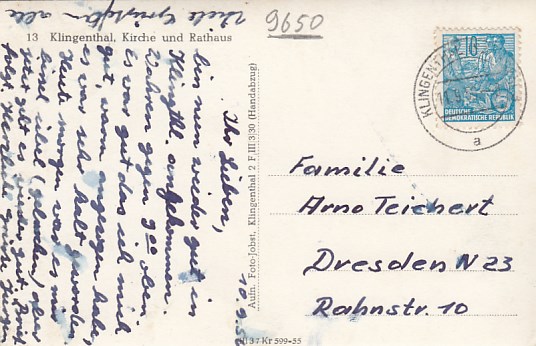 9650
13 Klingenthal, Kirche und Rathaus
Viele Grüße an alle
10.9.56
Ihr Lieben,
bin nun wieder gut in
Klingthl. angekommen.
Es war gut daß ich mich
warm angezogen habe,
es war sehr kalt geworden.
Heute morgen war es mir
übel (geladen) aber
jetzt geht es wieder gut.
Herzliche Grüße
Aufn. Foto-Jobst, Klingenthal 2 F III/3/30 (Handabzug)
II 37 Kr 599-55
KLINGENTHAL
a
10
DEUTSCHE
DEMOKRATISCHE REPUBLIK
Familie
Arno Teichert
Dresden N 23
Rahnstr. 10